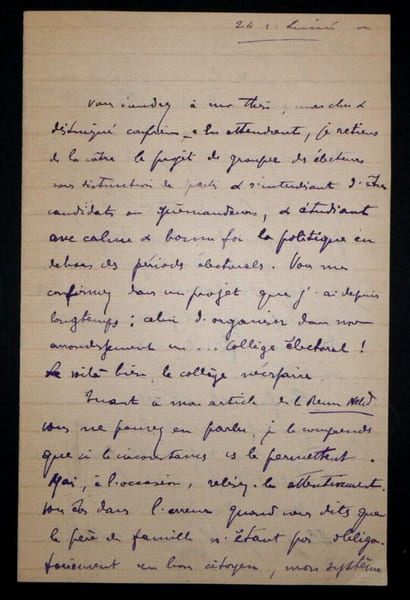 vous viendrez à ma thèse, mon cher &
distingué confrère. En attendant, je retiens
de la vôtre le projet de grouper des électeurs
sans distinction de partis & s'interdisant d'être
candidats ou quémandeurs, & étudiant
avec calme & bonne foi la politique en
dehors des périodes électorales. Vous me
confirmez dans un projet que j'ai depuis
longtemps ; celui d'organiser dans mon
arrondissement un... collège électoral !
le voilà bien, le collège nécessaire.
Quant à mon article de la Revue Hebd
vous ne pouvez en parler, je le comprends
que si les circonstances le permettent.
Mais, à l'occasion, relisez-le attentivement.
vous êtes dans l'erreur quand vous dites que
le père de famille n'étant pas obliga-
toirement un bon citoyen, mon système